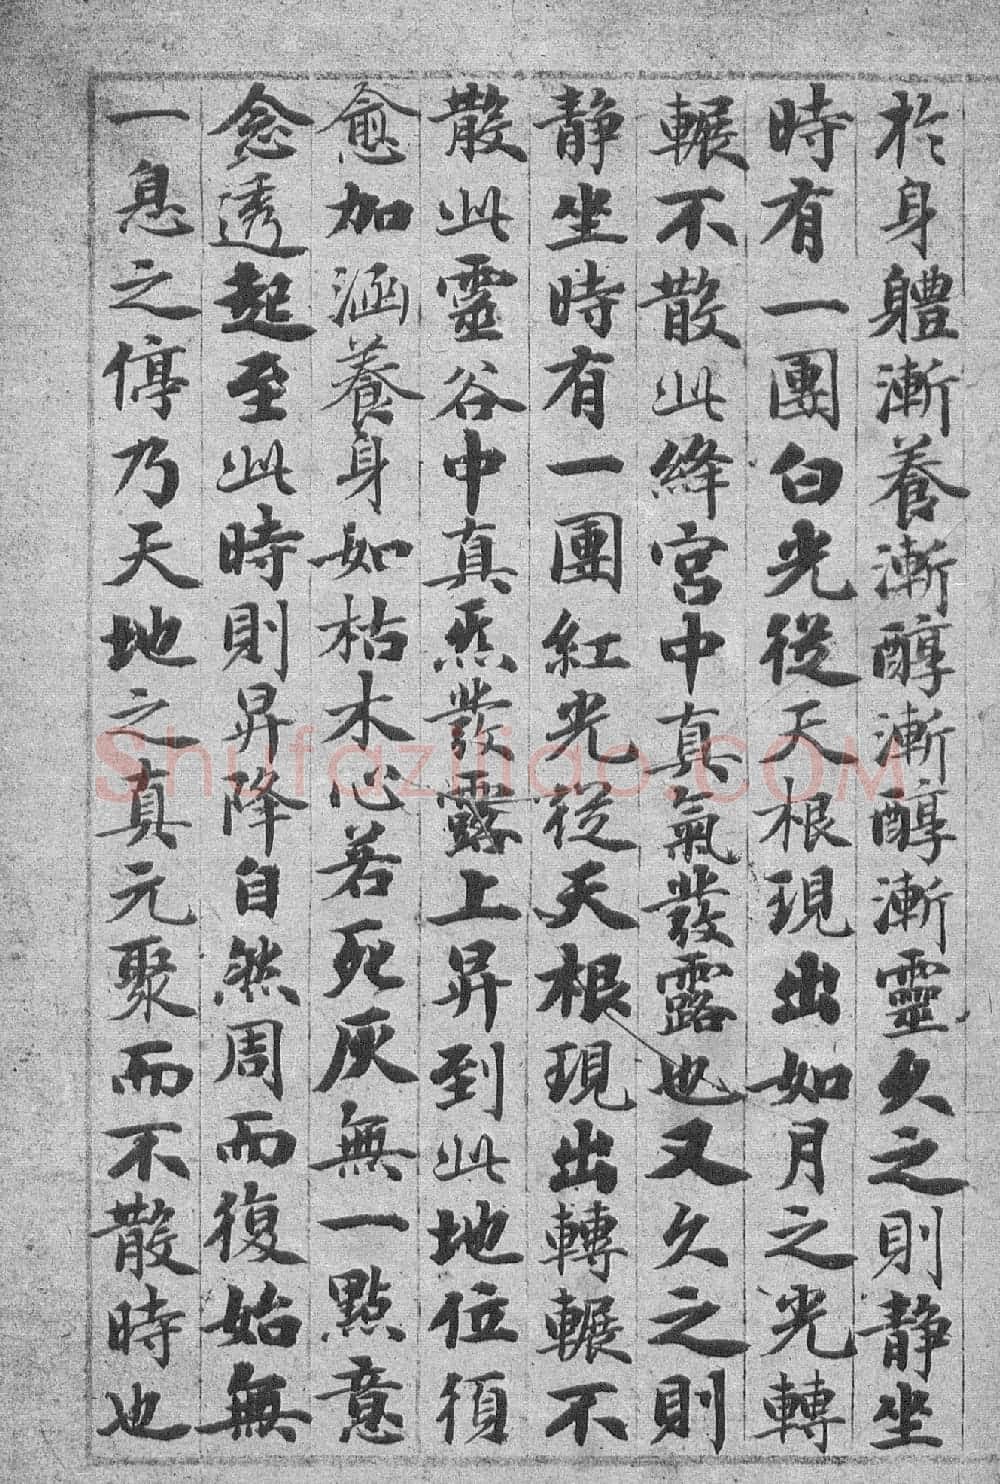 於身軆漸養漸醇漸醇漸靈久之則静坐
時有一團白光從天根現出如月之光轉
輾不散此絳宮中真氣發露也又久之則
静坐時有一團紅光從天根現出轉輾不
散此靈谷中真炁發露上昇到此地位須
愈加涵養身如枯木心若死灰無一點意
念透起至此時則昇降自然周而復始無
一息之停乃天地之真元聚而不散時也
Shufaziliao.COM